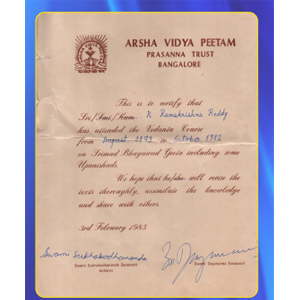 ARSHA VIDYA PEETAM
PRASANNA TRUST
BANGALORE
This is to certify that
Sri/Smt/Kum K Ramakrishna Reddy
has attended the Vedanta Course
from August 1979 to October 1982
on Srimad Bhagavad Geeta including some
Upanishads.
We hope that he/she will revise the
texts thoroughly, assimilate the knowledge
and share with others.
3rd February 1985
Swami Sukhabodhananda
Swami Sukhabodhananda Saraswati
Acharya
Swami Dayananda Saraswati